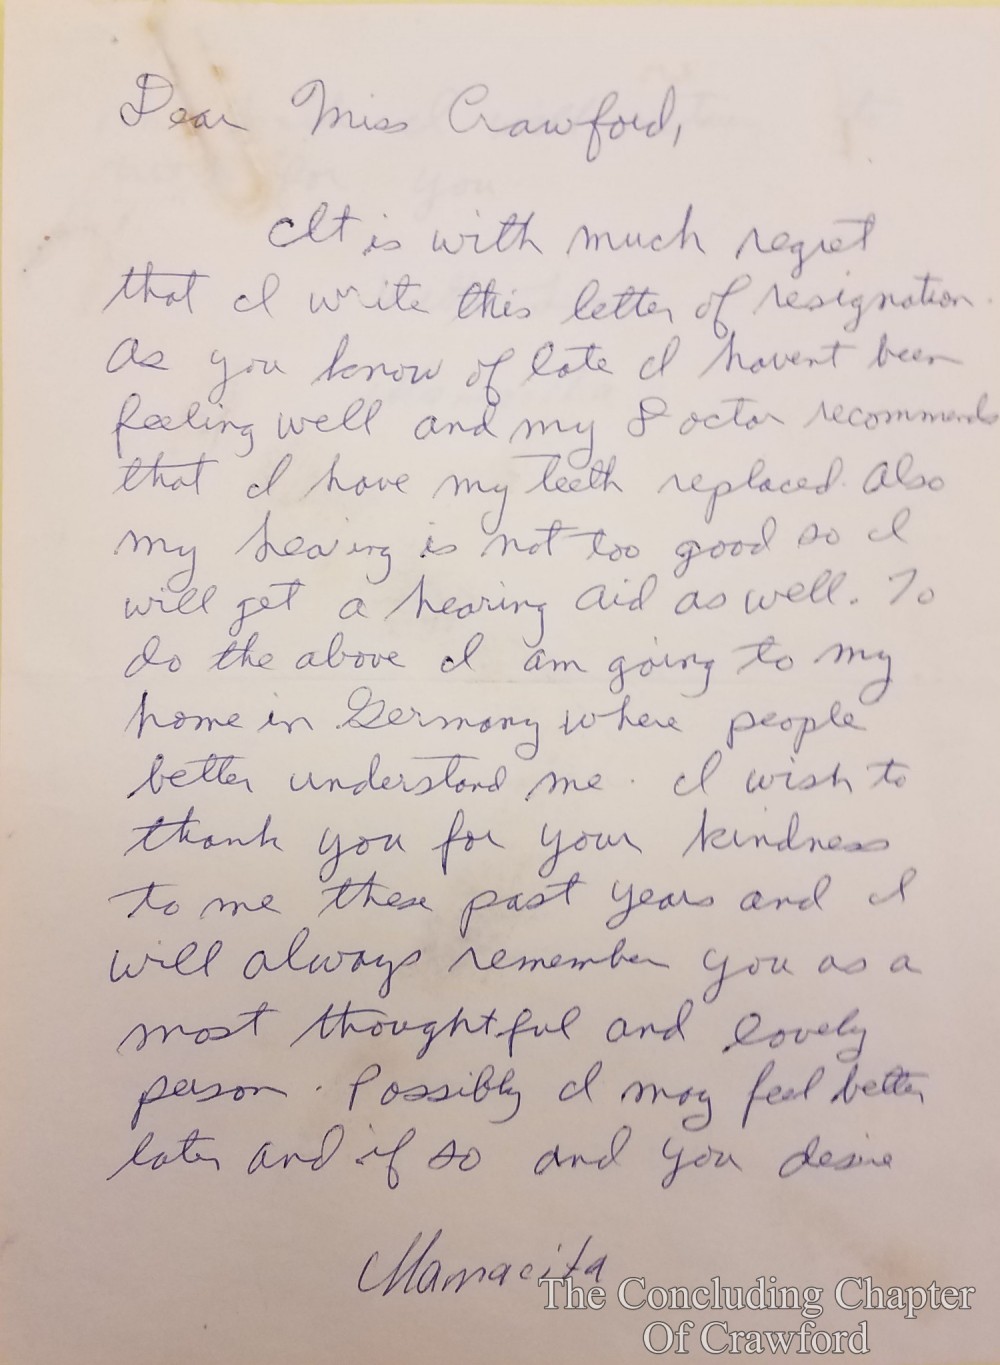 Dear Miss Crawford,
It is with much regret
that I write this letter of resignation.
As you know of late I havent been
feeling well and my Doctor recommends
that I have my teeth replaced. Also
my hearing is not too good so I
will get a hearing aid as well. To
do the above I am going to my
home in Germany where people
better understand me. I wish to
thank you for your kindness
to me these past years and I
will always remember you as a
most thoughtful and lovely
person. Possibly I may feel better
later and if so and you desire
Mamacita
The Concluding Chapter
Of Crawford